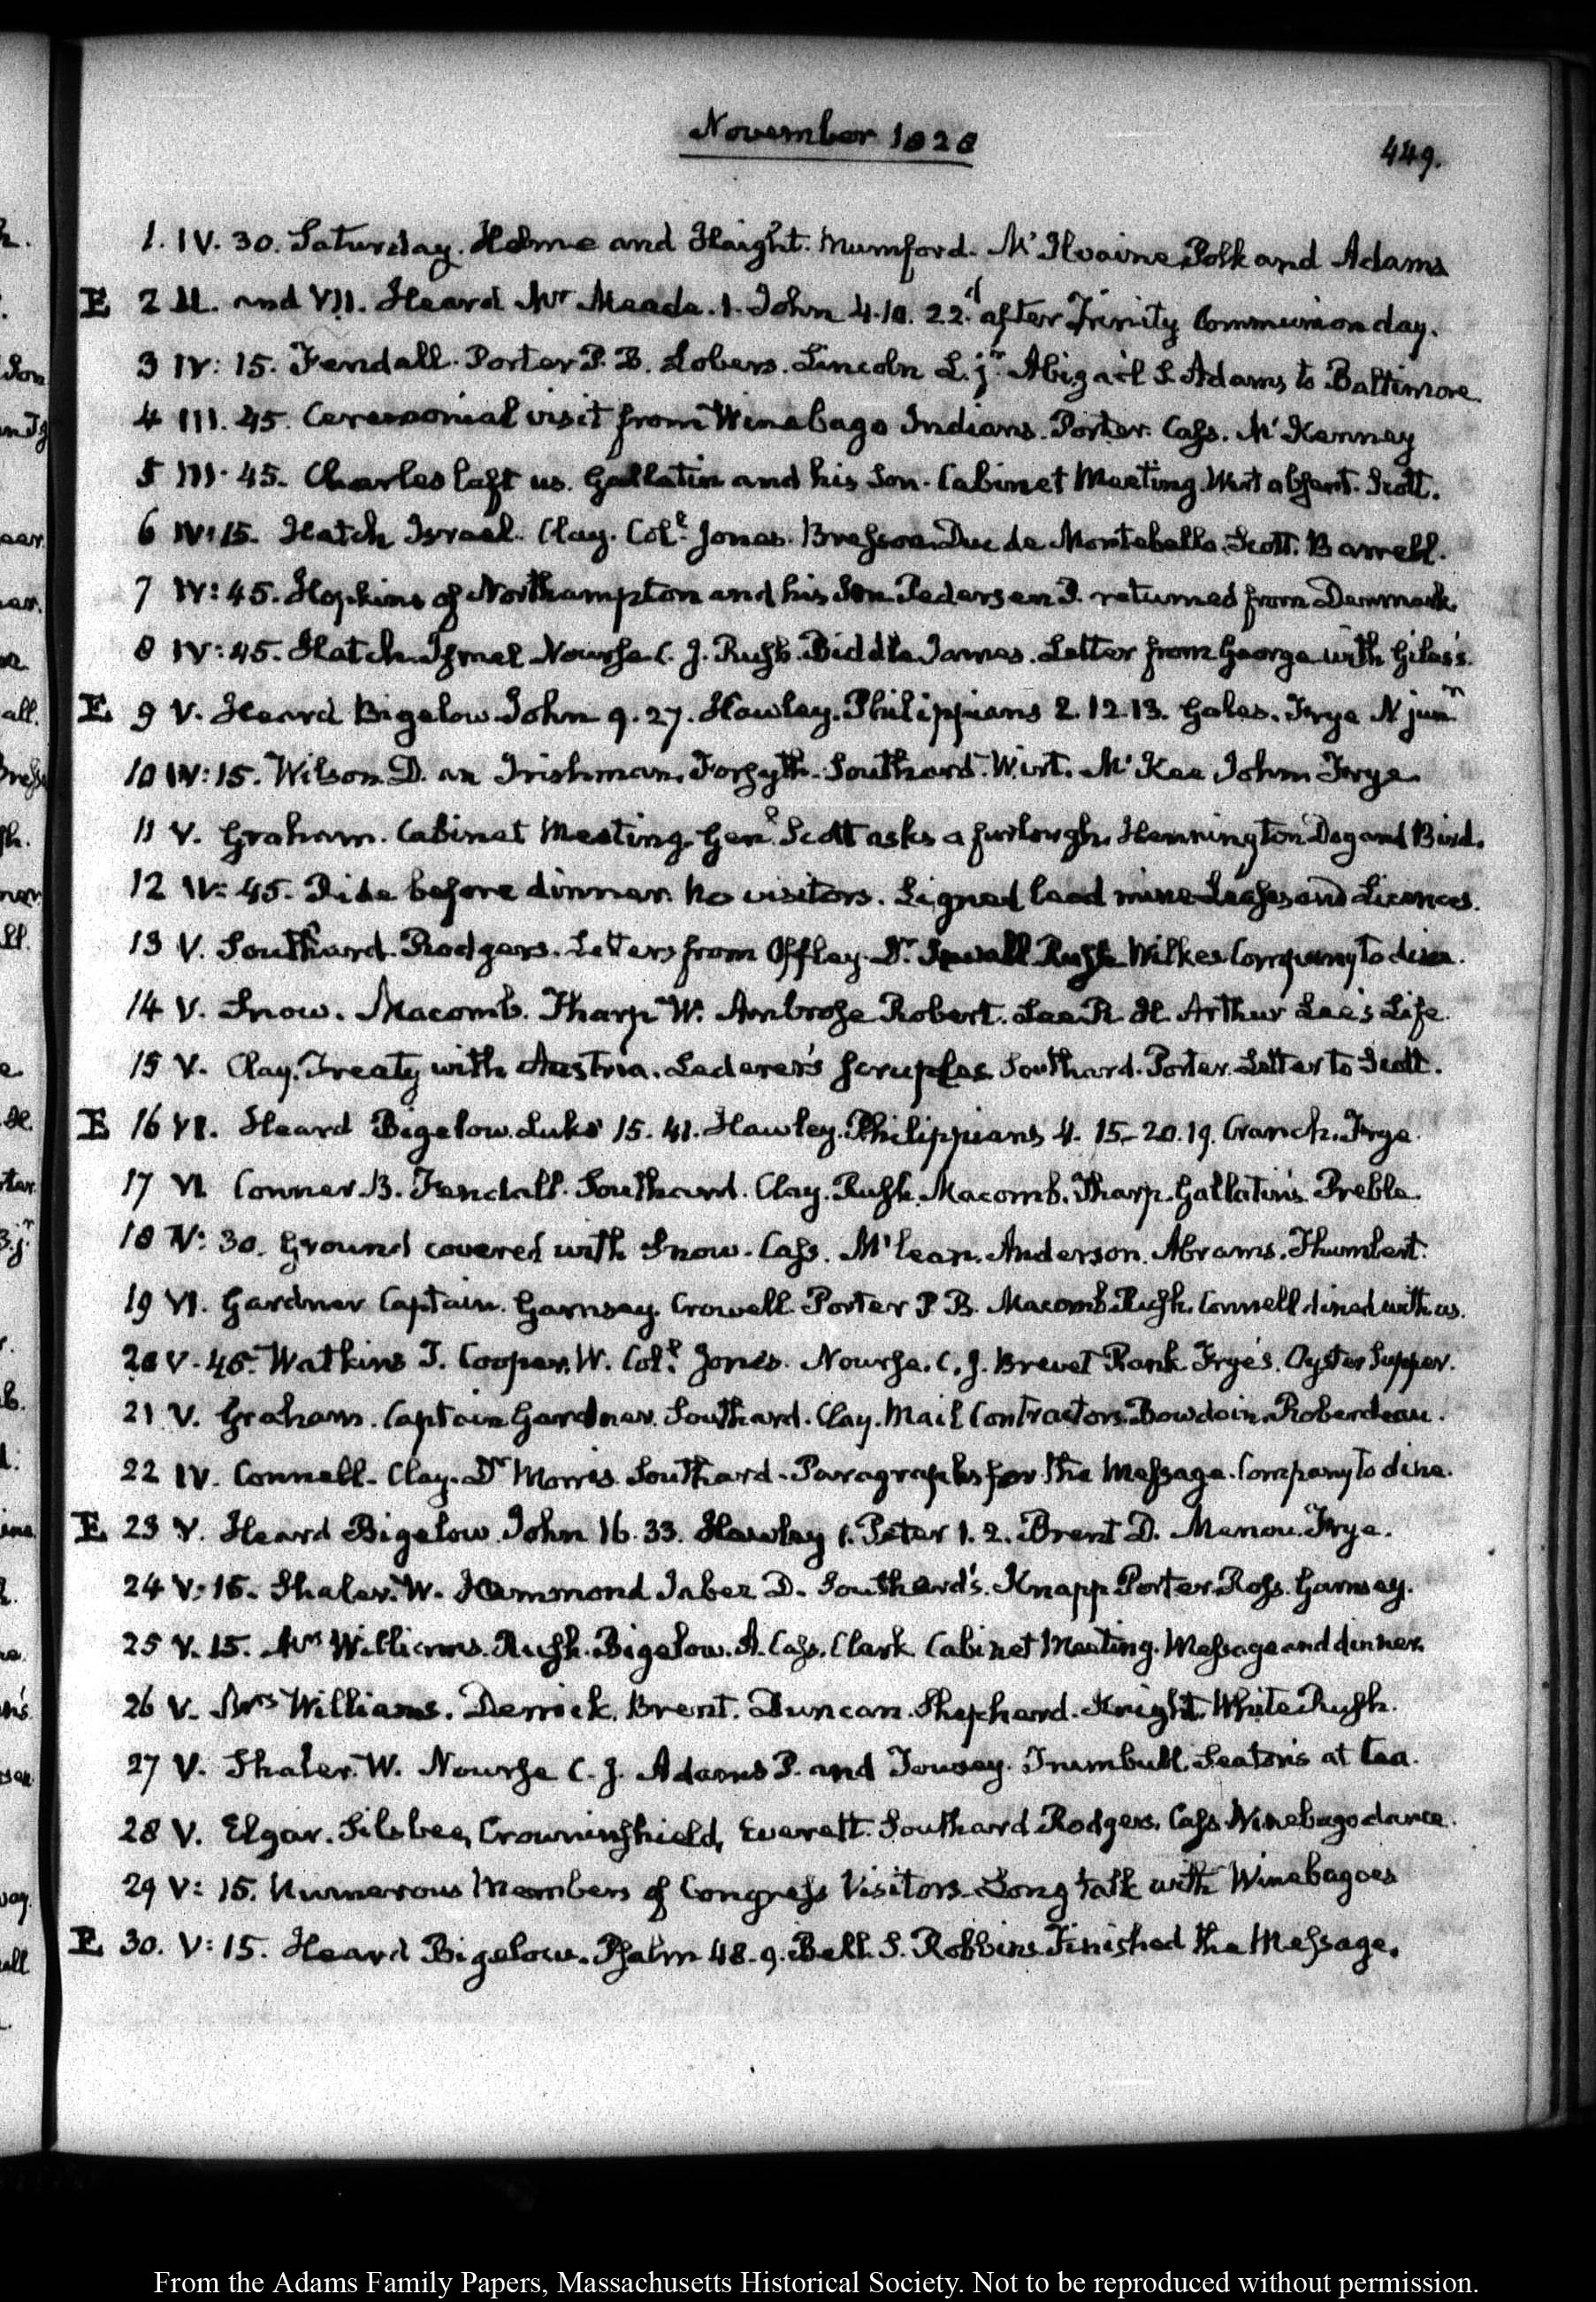 November 1828
449.
1. IV. 30. Saturday. Holme and Haight. Mumford. McIlvaine, Polk and Adams
E 2 II. and VII. Heard Mr Meade. 1. John 4.10. 22.d after Trinity Communion day.
3 IV: 15. Fendall. Porter P. B. Sobers. Lincoln L. jr. Abigail S. Adams to Baltimore
4 III. 45. Ceremonial visit from Winebago Indians. Porter. Cass. McKenney
5 III. 45. Charles left us. Gallatin and his Son. Cabinet Meeting. Wirt absent. Scott.
6 IV: 15. Hatch Israel. Clay. Coll. Jones. Bresson. Duc de Montebello. Scott. Barrell.
7 IV: 45. Hopkins of Northampton and his Son. Pedersen P. returned from Denmark.
8 IV: 45. Hatch. Nourse C. J. Rush. Biddle James. Letter from George with Giles's.
E 9 V. Heard Bigelow John 9. 27. Hawley. Philippians 2. 12.13. Gales. Frye N junr
10 IV: 15. Wilson D. an Irishman. Forsyth. Southard. Wirt. McKee John Frye.
11 V. Graham. Cabinet Meeting. Genl. Scott asks a furlough. Hennington Dog and Bird.
12 IV: 45. Ride before dinner. No visitors. Signed lead mine Leases and Licences.
13 V. Southard. Rodgers. Letters from Offley. Dr. Sewall Rush Wilkes. Company to dine.
14 V. Snow. Macomb. Tharp W. Ambrose Robert. Lee R. H. Arthur Lee's Life.
15 V. Clay. Treaty with Austria. Lederer's scruples. Southard. Porter. Letter to Scott.
E 16 VI. Heard Bigelow. Luke 15. 41. Hawley. Philippians 4. 15-20.19. Cranch. Frye.
17 VI Conner B. Fendall. Southard. Clay. Rush. Macomb. Tharp. Gallatin's Preble.
18 IV: 30. Ground covered with Snow. Cass. McLean. Anderson. Abrams. Thumbert.
19 VI. Gardner Captain. Garnsey. Crowell. Porter P. B. Macomb. Rush. Connell dined with us.
20 V. 45. Watkins T. Cooper. W. Coll. Jones. Nourse. C. J. Brevet Rank Frye's. Oyster Supper.
21 V. Graham. Captain Gardner. Southard. Clay. Mail Contractors. Bowdoin. Roberdeau.
22 IV. Connell. Clay. Dr Morris. Southard. Paragraphs for the Message. Company to dine.
E 23 V. Heard Bigelow. John 16. 33. Hawley 1. Peter 1. 2. Brent D. Menou. Frye.
24 V: 15. Shaler. W. Hammond Jabez D. Southard's. Knapp. Porter. Ross. Garnsey.
25 V. 15. Mrs Williams. Rush. Bigelow. A. Cass. Clark. Cabinet Meeting. Message and dinner.
26 V. Mrs Williams. Derrick. Brent. Duncan. Shepherd. Knight. White. Rush.
27 V. Shaler. W. Nourse C. J. Adams P. and Tousey. Trumbull. Seaton's at tea.
28 V. Elgar. Silsbee, Crowninshield, Everett. Southard Rodgers. Cass. Winebago dance.
29 V: 15. Numerous Members of Congress Visitors. Long talk with Winebagoes
E 30. V: 15. Heard Bigelow. Psalm 48. 9. Bell. S. Robbins. Finished the Message.
From the Adams Family Papers, Massachusetts Historical Society. Not to be reproduced without permission.